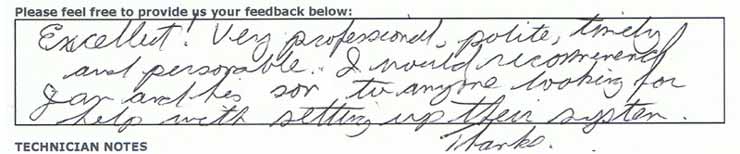 Please feel free to provide us your feedback below:
Excellent! Very professional, polite, timely
and personable. I would recommend
Jay and his son to anyone looking for
help with setting up their system.
Thanks.
TECHNICIAN NOTES